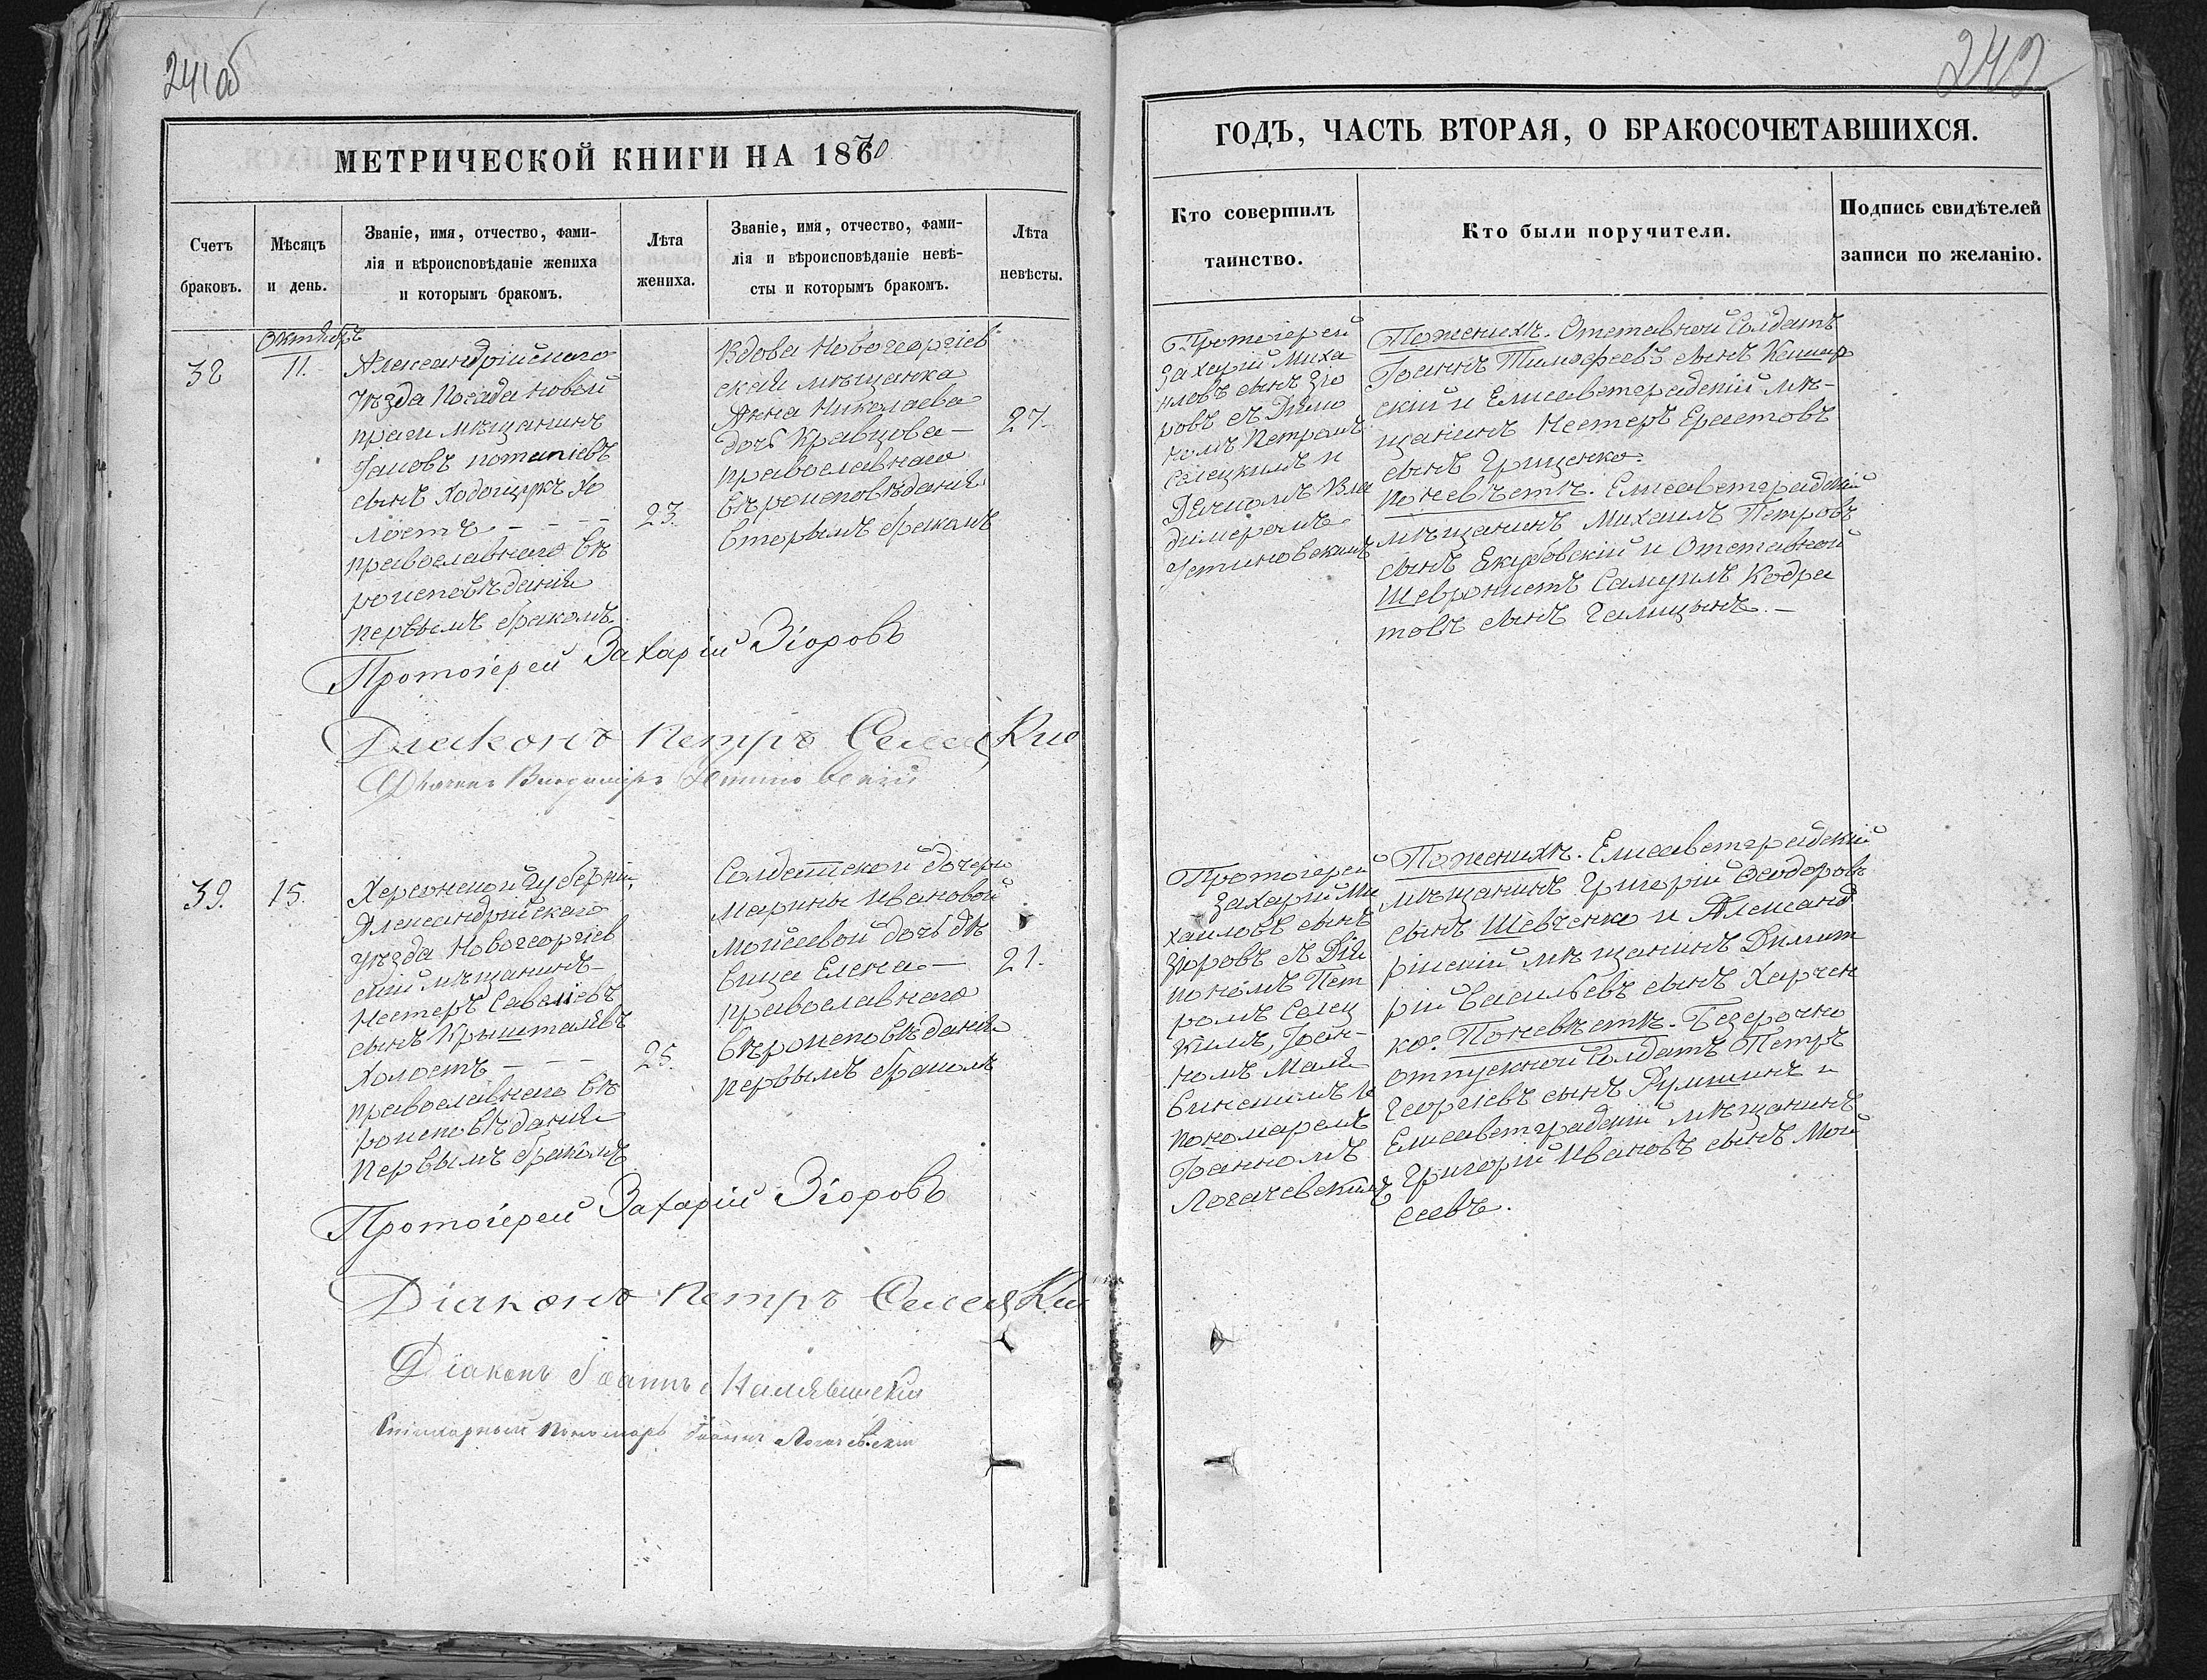 241 об
МЕТРИЧЕСКОЙ КНИГИ НА 1870
Счетъ
браковъ.
Мѣсяцъ
и день.
Званіе, имя, отчество, фами-
лія и вѣроисповѣданіе жениха
и которымъ бракомъ.
Лѣта
жениха.
Званіе, имя, отчество, фами-
лія и вѣроисповѣданіе невѣ-
сты и которымъ бракомъ.
Лѣта
невѣсты.
38
Октябрь
11.
Александрійскаго
уѣзда Посада Новой
праги мѣщанинъ
Іаковъ потапіевъ
сынъ Ходощукъ хо
лостъ - - - -
православнаго вѣ
роисповѣданія
первымъ бракомъ
23.
Вдова Новогеоргіев
ская мѣщанка
Анна Николаева
дочь Кравцова -
православнаго
вѣроисповѣданія
вторымъ бракомъ
27.
Протоіерей Захарій Зіоровъ
Діаконъ Петръ Селецкій
Дьячекъ Владимиръ Устиновскій
39.
15.
Херсонской губерніи,
Александрійскаго
уѣзда Новогеоргіев
скій мѣщанинъ
Нестеръ Савеліевъ
сынъ Крышталевъ
Холостъ - - -
православнаго вѣ
роисповѣданія
первымъ бракомъ
25.
Солдатской дочери
Марины Ивановой
Мойсеевой дочь дѣ
вица Елена -
православнаго
вѣроисповѣданія
первымъ бракомъ
21.
Протоіерей Захарій Зіоровъ
Діаконъ Петръ Селецкій
Діаконъ Іоаннъ Малявинскій
Пономарь Іоаннъ Логачевскій
242
ГОДЪ, ЧАСТЬ ВТОРАЯ, О БРАКОСОЧЕТАВШИХСЯ.
Кто совершилъ
таинство.
Кто были поручители.
Подпись свидѣтелей
записи по желанію.
Протоіерей
Захарій Миха
иловъ сынъ Зіо
ровъ съ Діако
номъ Петромъ
Селецкимъ и
Дячкомъ Вла
димеромъ
Устиновскимъ
По женихѣ. Отставной Солдатъ
Іоаннъ Тимофеевъ сынъ
скій и Елисаветградскій мѣ-
щанинъ Нестеръ Ерастовъ
сынъ Грищенко.
По невѣстѣ. Елисаветградскій
мѣщанинъ Михаилъ Петровъ
сынъ Екубовскій и Отставной
Шевронистъ Самуилъ Кодра
товъ сынъ Галицынъ. -
Протоіерей
Захарій Ми
хаиловъ сынъ
Зіоровъ съ Дія
кономъ Пет
ромъ Селец
кимъ, Іоан-
номъ Маля
винскимъ и
пономаремъ
Іоанномъ
Логачевскимъ
По женихѣ. Елисаветградскій
мѣщанинъ Григорій Феодоровъ
сынъ Шевченко и Александ
рійскій мѣщанинъ Димит
рій Васильевъ сынъ Харчен
ко. По невѣстѣ. Безсрочно
отпускной Солдатъ Петръ
Георгіевъ сынъ Румшинъ и
Елисаветградскій мѣщанинъ
Григорій Ивановъ сынъ Мой
сеевъ.